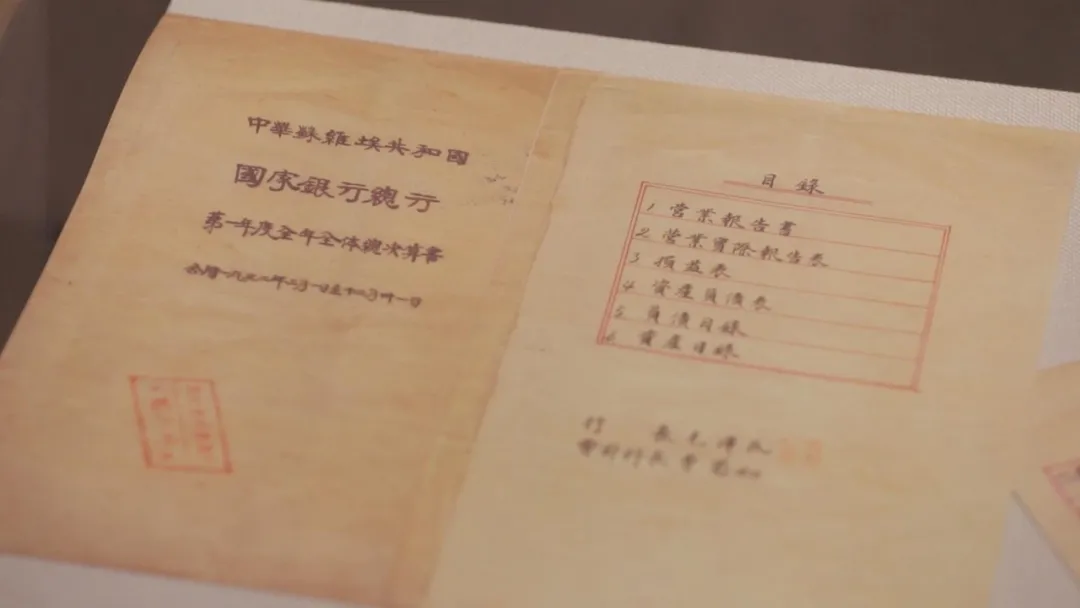 中華蘇維埃共和國
國家銀行總行
第一年度全年全体總決算書
公曆一九三二年二月一日至十二月卅一日
目錄
1. 营業報告書
2. 營業實際報告表
3. 損益表
4. 資產負債表
5. 負債目錄
6. 資產目錄
行 長毛澤民
會計科長曹菊如